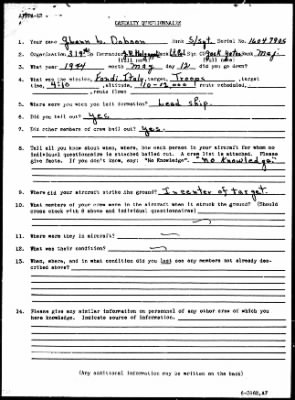 CASUALTY QUESTIONNAIRE
1. Your name Glenn b. Dobson Rank S/sgt. Serial No.
2. Organization 319th Gp Commander Rank Col Sqn CO Rank Maj
(full name) (full name)
3. What year 1944 month May day 12 did you go down?
4. What was the mission, Fondi, Italy, target, Troops, target
time, 410, altitude, 10-12 000 route scheduled,
, route flown
5. Where were you when you left formation? Lead ship.
6. Did you bail out? Yes
7. Did other members of crew bail out? Yes.
8. Tell all you know about when, where, how each person in your aircraft for whom no
individual questionnaire is attached bailed out. A crew list is attached. Please
give facts. If you don't know, say: "No Knowledge". "no knowledge"
9. Where did your aircraft strike the ground? In center of target.
10. What members of your crew were in the aircraft when it struck the ground? (Should
cross check with 8 above and individual questionnaires)
11. Where were they in aircraft?
12. What was their condition?
13. When, where, and in what condition did you last see any members not already des-
cribed above?
14. Please give any similar information on personnel of any other crew of which you
have knowledge. Indicate source of information.
(Any additional information may be written on the back)
6-3862,AF